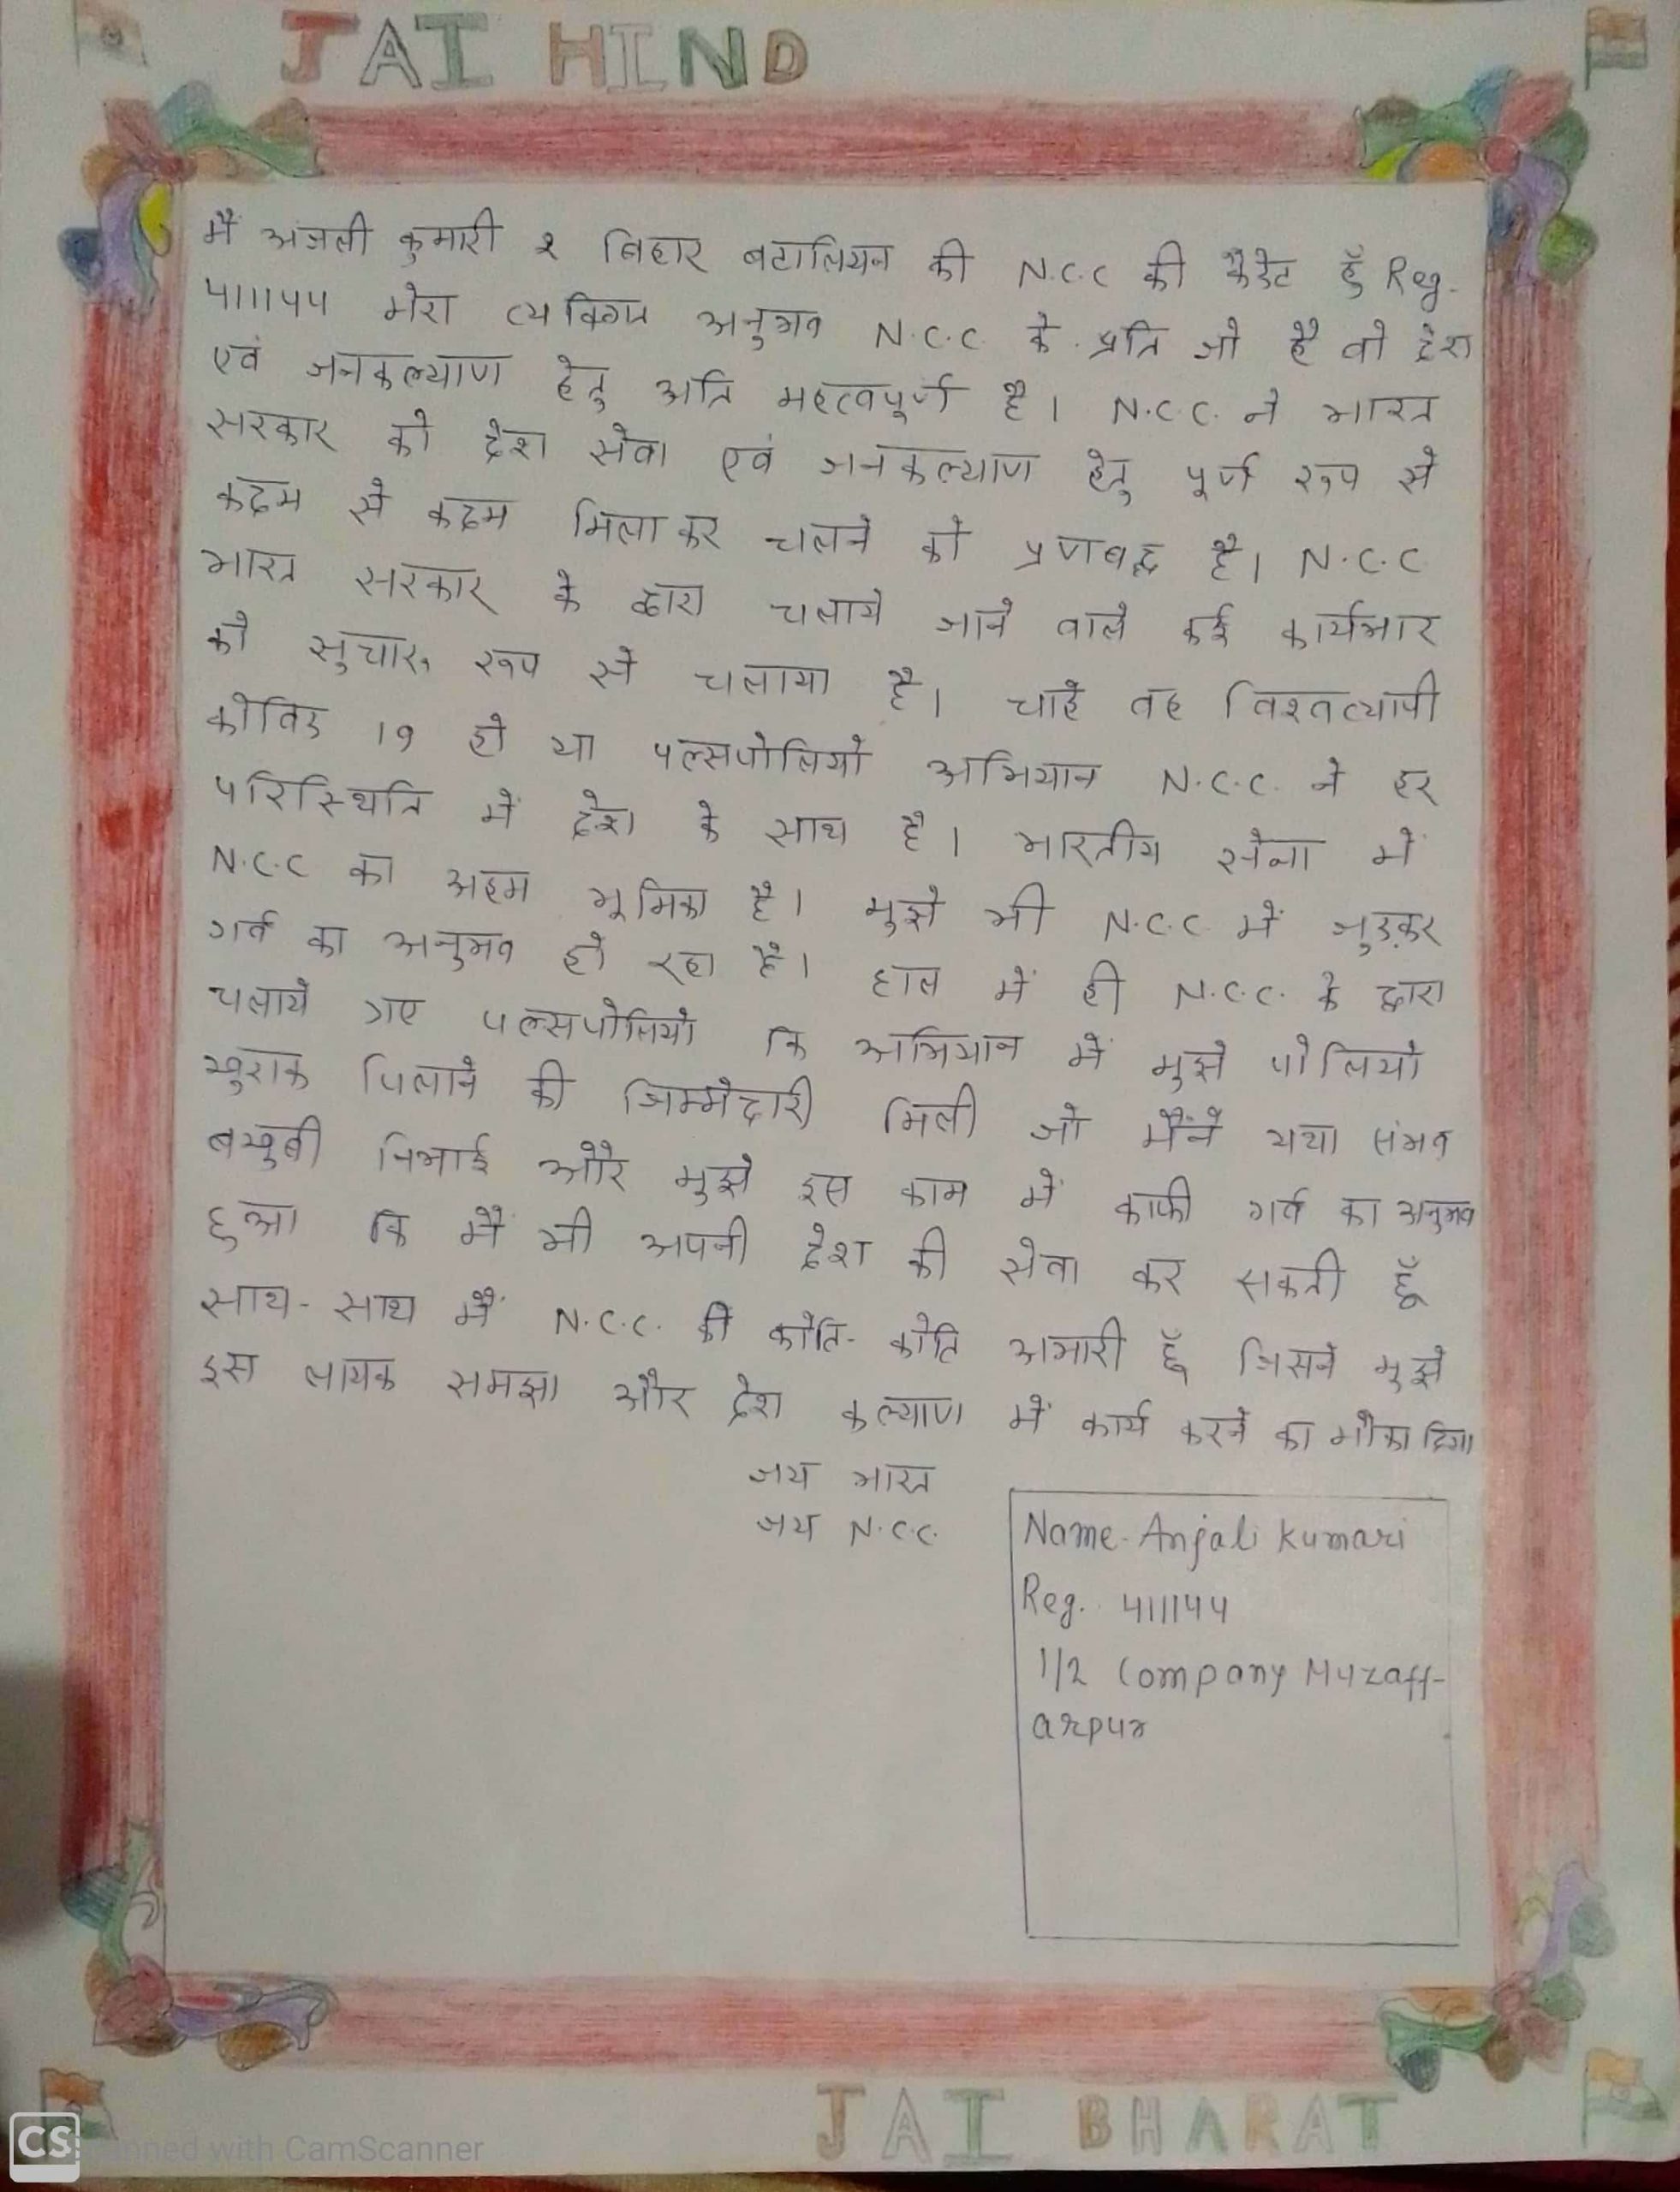 JAI HIND
मैं अंजली कुमारी २ बिहार बटालियन की N.C.C की कैडेट हूँ Reg.
411144 मेरा व्यक्तिगत अनुभव N.C.C. के प्रति जो है वो देश
एवं जनकल्याण हेतु अति महत्वपूर्ण है। N.C.C. ने भारत
सरकार को देश सेवा एवं जनकल्याण हेतु पूर्ण रूप से
कदम से कदम मिला कर चलने को प्रणबद्ध है। N.C.C
भारत सरकार के द्वारा चलाये जाने वाले कई कार्यभार
को सुचारू रूप से चलाया है। चाहे वह विश्वव्यापी
कोविड 19 हो या पल्सपोलियो अभियान N.C.C. ने हर
परिस्थिति में देश के साथ है। भारतीय सेना में
N.C.C का अहम भूमिका है। मुझे भी N.C.C में जुड़कर
गर्व का अनुभव हो रहा है। हाल में ही N.C.C. के द्वारा
चलाये गए पल्सपोलियो कि अभियान में मुझे पोलियो
खुराक पिलाने की जिम्मेदारी मिली जो मैंने यथा संभव
बखुबी निभाई और मुझे इस काम में काफी गर्व का अनुभव
हुआ कि मैं भी अपनी देश की सेवा कर सकती हूँ
साथ-साथ मैं N.C.C. की कोति-कोति अभारी हूँ जिसने मुझे
इस लायक समझा और देश कल्याण में कार्य करने का मौका दिया
जय भारत
जय N.C.C.
Name-Anjali Kumari
Reg. 411144
1/2 Company Muzaff-
arpur
JAI BHARAT
CS Scanned with CamScanner